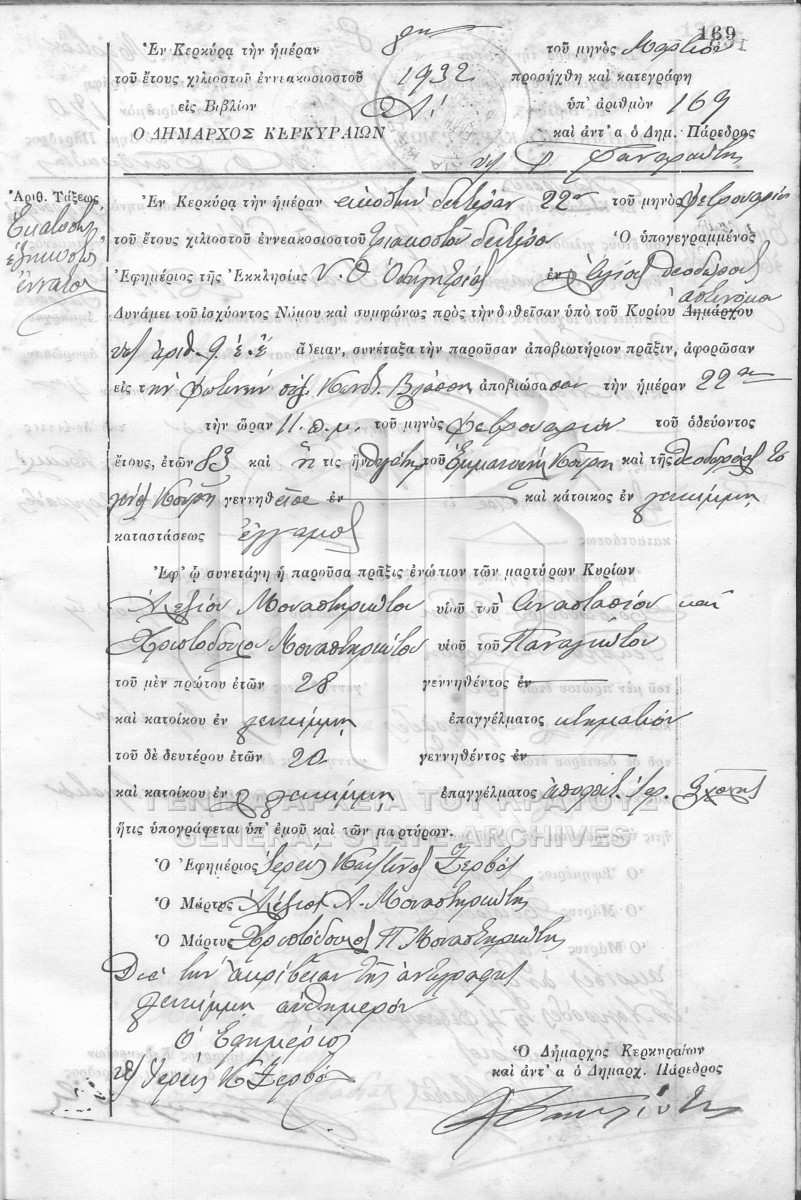 169
Ἐν Κερκύρᾳ τὴν ἡμέραν 8ην τοῦ μηνὸς Μαρτίου
τοῦ ἔτους χιλιοστοῦ ἐννεακοσιοστοῦ 1932 προσήχθη καὶ κατεγράφη
εἰς Βιβλίον Α΄ ὑπ' ἀριθμὸν 169
Ο ΔΗΜΑΡΧΟΣ ΚΕΡΚΥΡΑΙΩΝ καὶ ἀντ' α ὁ Δημ. Πάρεδρος
Ἀριθ. Τάξεως
Ἑκατοστὴ
ἑξηκοστὴ
ἐννάτη
Ἐν Κερκύρᾳ τὴν ἡμέραν εἰκοστὴν δευτέραν 22αν τοῦ μηνὸς Φεβρουαρίου
τοῦ ἔτους χιλιοστοῦ ἐννεακοσιοστοῦ τριακοστοῦ δευτέρου Ὁ ὑπογεγραμμένος
Ἐφημέριος τῆς Ἐκκλησίας Υ. Θ. Ὁδηγητρίας ἐν Ἁγίους Θεοδώρους
Δυνάμει τοῦ ἰσχύοντος Νόμου καὶ συμφώνως πρὸς τὴν δοθεῖσαν ὑπὸ τοῦ Κυρίου Δημάρχου ἀστυνόμου
ἀριθ. 9 ἐ. ἔ ἄδειαν, συνέταξα τὴν παροῦσαν ἀποβιωτήριον πρᾶξιν, ἀφορῶσαν
εἰς τὴν Φωτεινὴν συζ. Κωνστ. Βλάσση ἀποβιώσασαν τὴν ἡμέραν 22αν
τὴν ὥραν 11 π.μ. τοῦ μηνὸς Φεβρουαρίου τοῦ ὁδεύοντος
ἔτους, ἐτῶν 83 καὶ ἥτις ἦν θυγάτηρ τοῦ Ἐμμανουὴλ Κουρῆ καὶ τῆς Θεοδώρας τὸ
γένος Κουρῆ γεννηθεῖσα ἐν καὶ κάτοικος ἐν Λευκίμμη
καταστάσεως ἔγγαμος
Ἐφ' ᾧ συνετάγη ἡ παροῦσα πρᾶξις ἐνώπιον τῶν μαρτύρων Κυρίων
Ἀλεξίου Μοναστηριώτου υἱοῦ τοῦ Ἀναστασίου καὶ
Χριστοδούλου Μοναστηριώτου υἱοῦ τοῦ Παναγιώτου
τοῦ μὲν πρώτου ἐτῶν 28 γεννηθέντος ἐν
καὶ κατοίκου ἐν Λευκίμμη ἐπαγγέλματος κτηματίου
τοῦ δὲ δευτέρου ἐτῶν 20 γεννηθέντος ἐν
καὶ κατοίκου ἐν Λευκίμμη ἐπαγγέλματος ἀποφοίτ. Ἱερ. Σχολῆς
ἥτις ὑπογράφεται ὑπ' ἐμοῦ καὶ τῶν μαρτύρων.
ΓΕΝΙΚΑ ΑΡΧΕΙΑ ΤΟΥ ΚΡΑΤΟΥΣ
GENERAL STATE ARCHIVES
Ὁ Ἐφημέριος Ἱερεὺς Κωνστῖνος Ζερβός
Ὁ Μάρτυς Ἀλέξιος Α. Μοναστηριώτης
Ὁ Μάρτυς Χριστόδουλος Π. Μοναστηριώτης
Διὰ τὴν ἀκρίβειαν τῆς ἀντιγραφῆς
Λευκίμμη αὐθημερόν
Ὁ Ἐφημέριος
Ἱερεὺς Κ Ζερβός
Ὁ Δήμαρχος Κερκυραίων
καὶ ἀντ' α ὁ Δημαρχ. Πάρεδρος